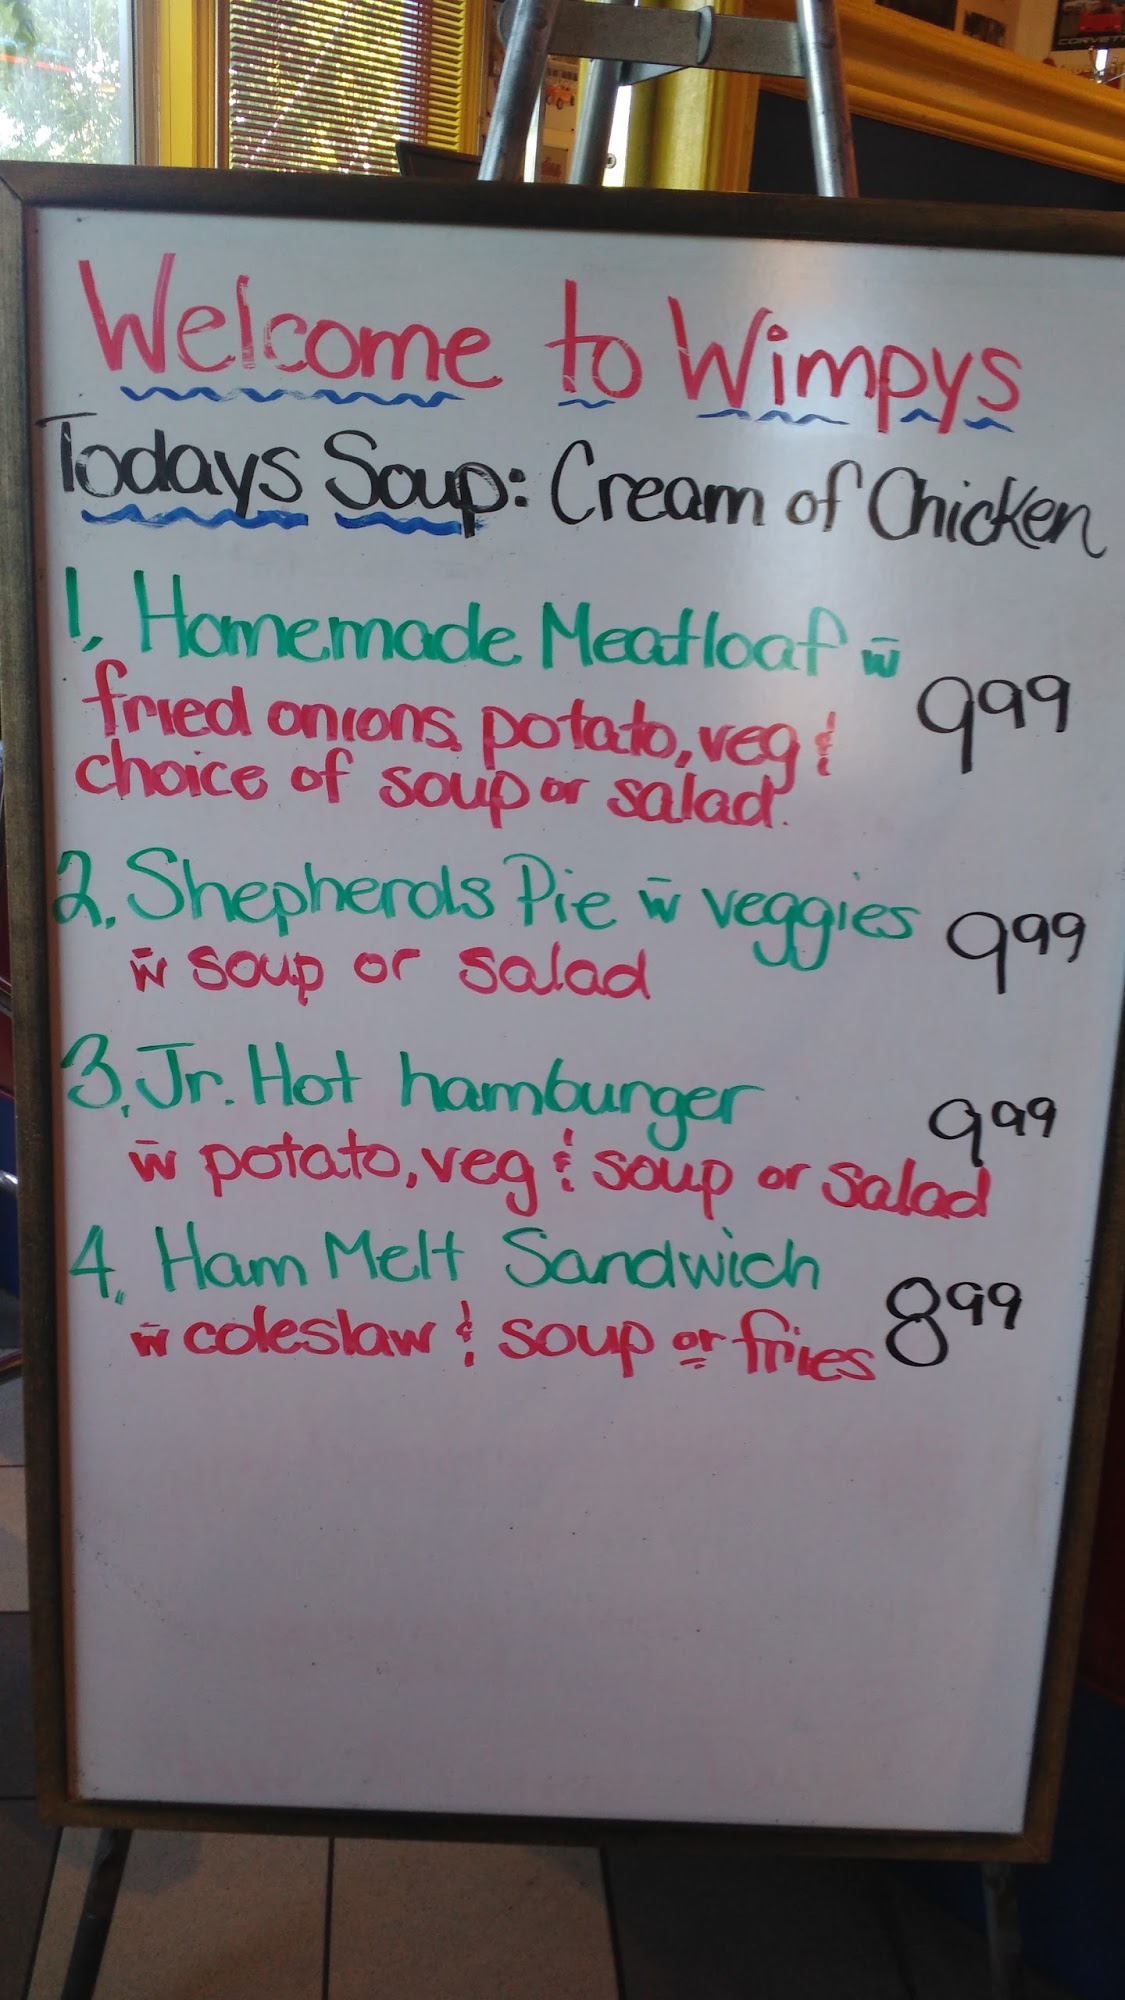 CORVETTE
Welcome to Wimpys
Todays Soup: Cream of Chicken
1. Homemade Meatloaf w̄
fried onions, potato, veg & 999
choice of soup or salad.
2. Shepherds Pie w̄ veggies 999
w̄ soup or salad
3. Jr. Hot hamburger 999
w̄ potato, veg & soup or salad
4. Ham Melt Sandwich 899
w̄ coleslaw & soup or fries